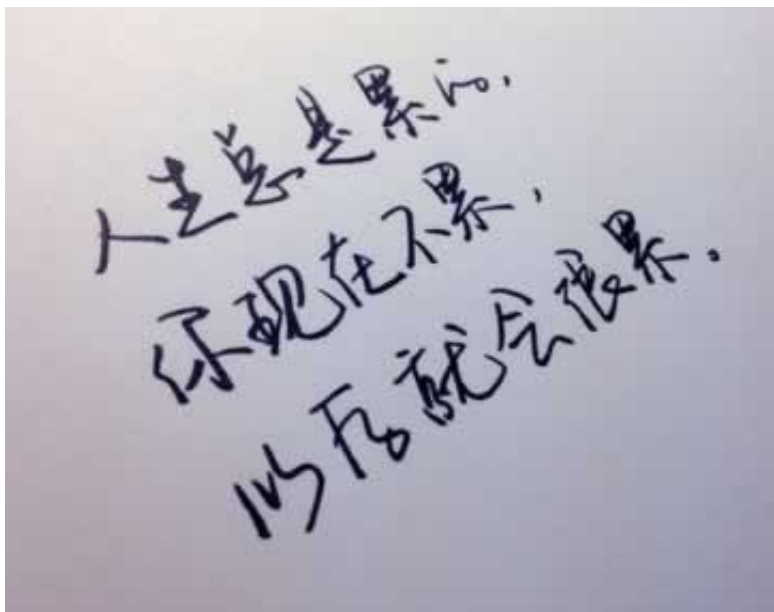 人生总是累的.
你现在不累,
以后就会很累。